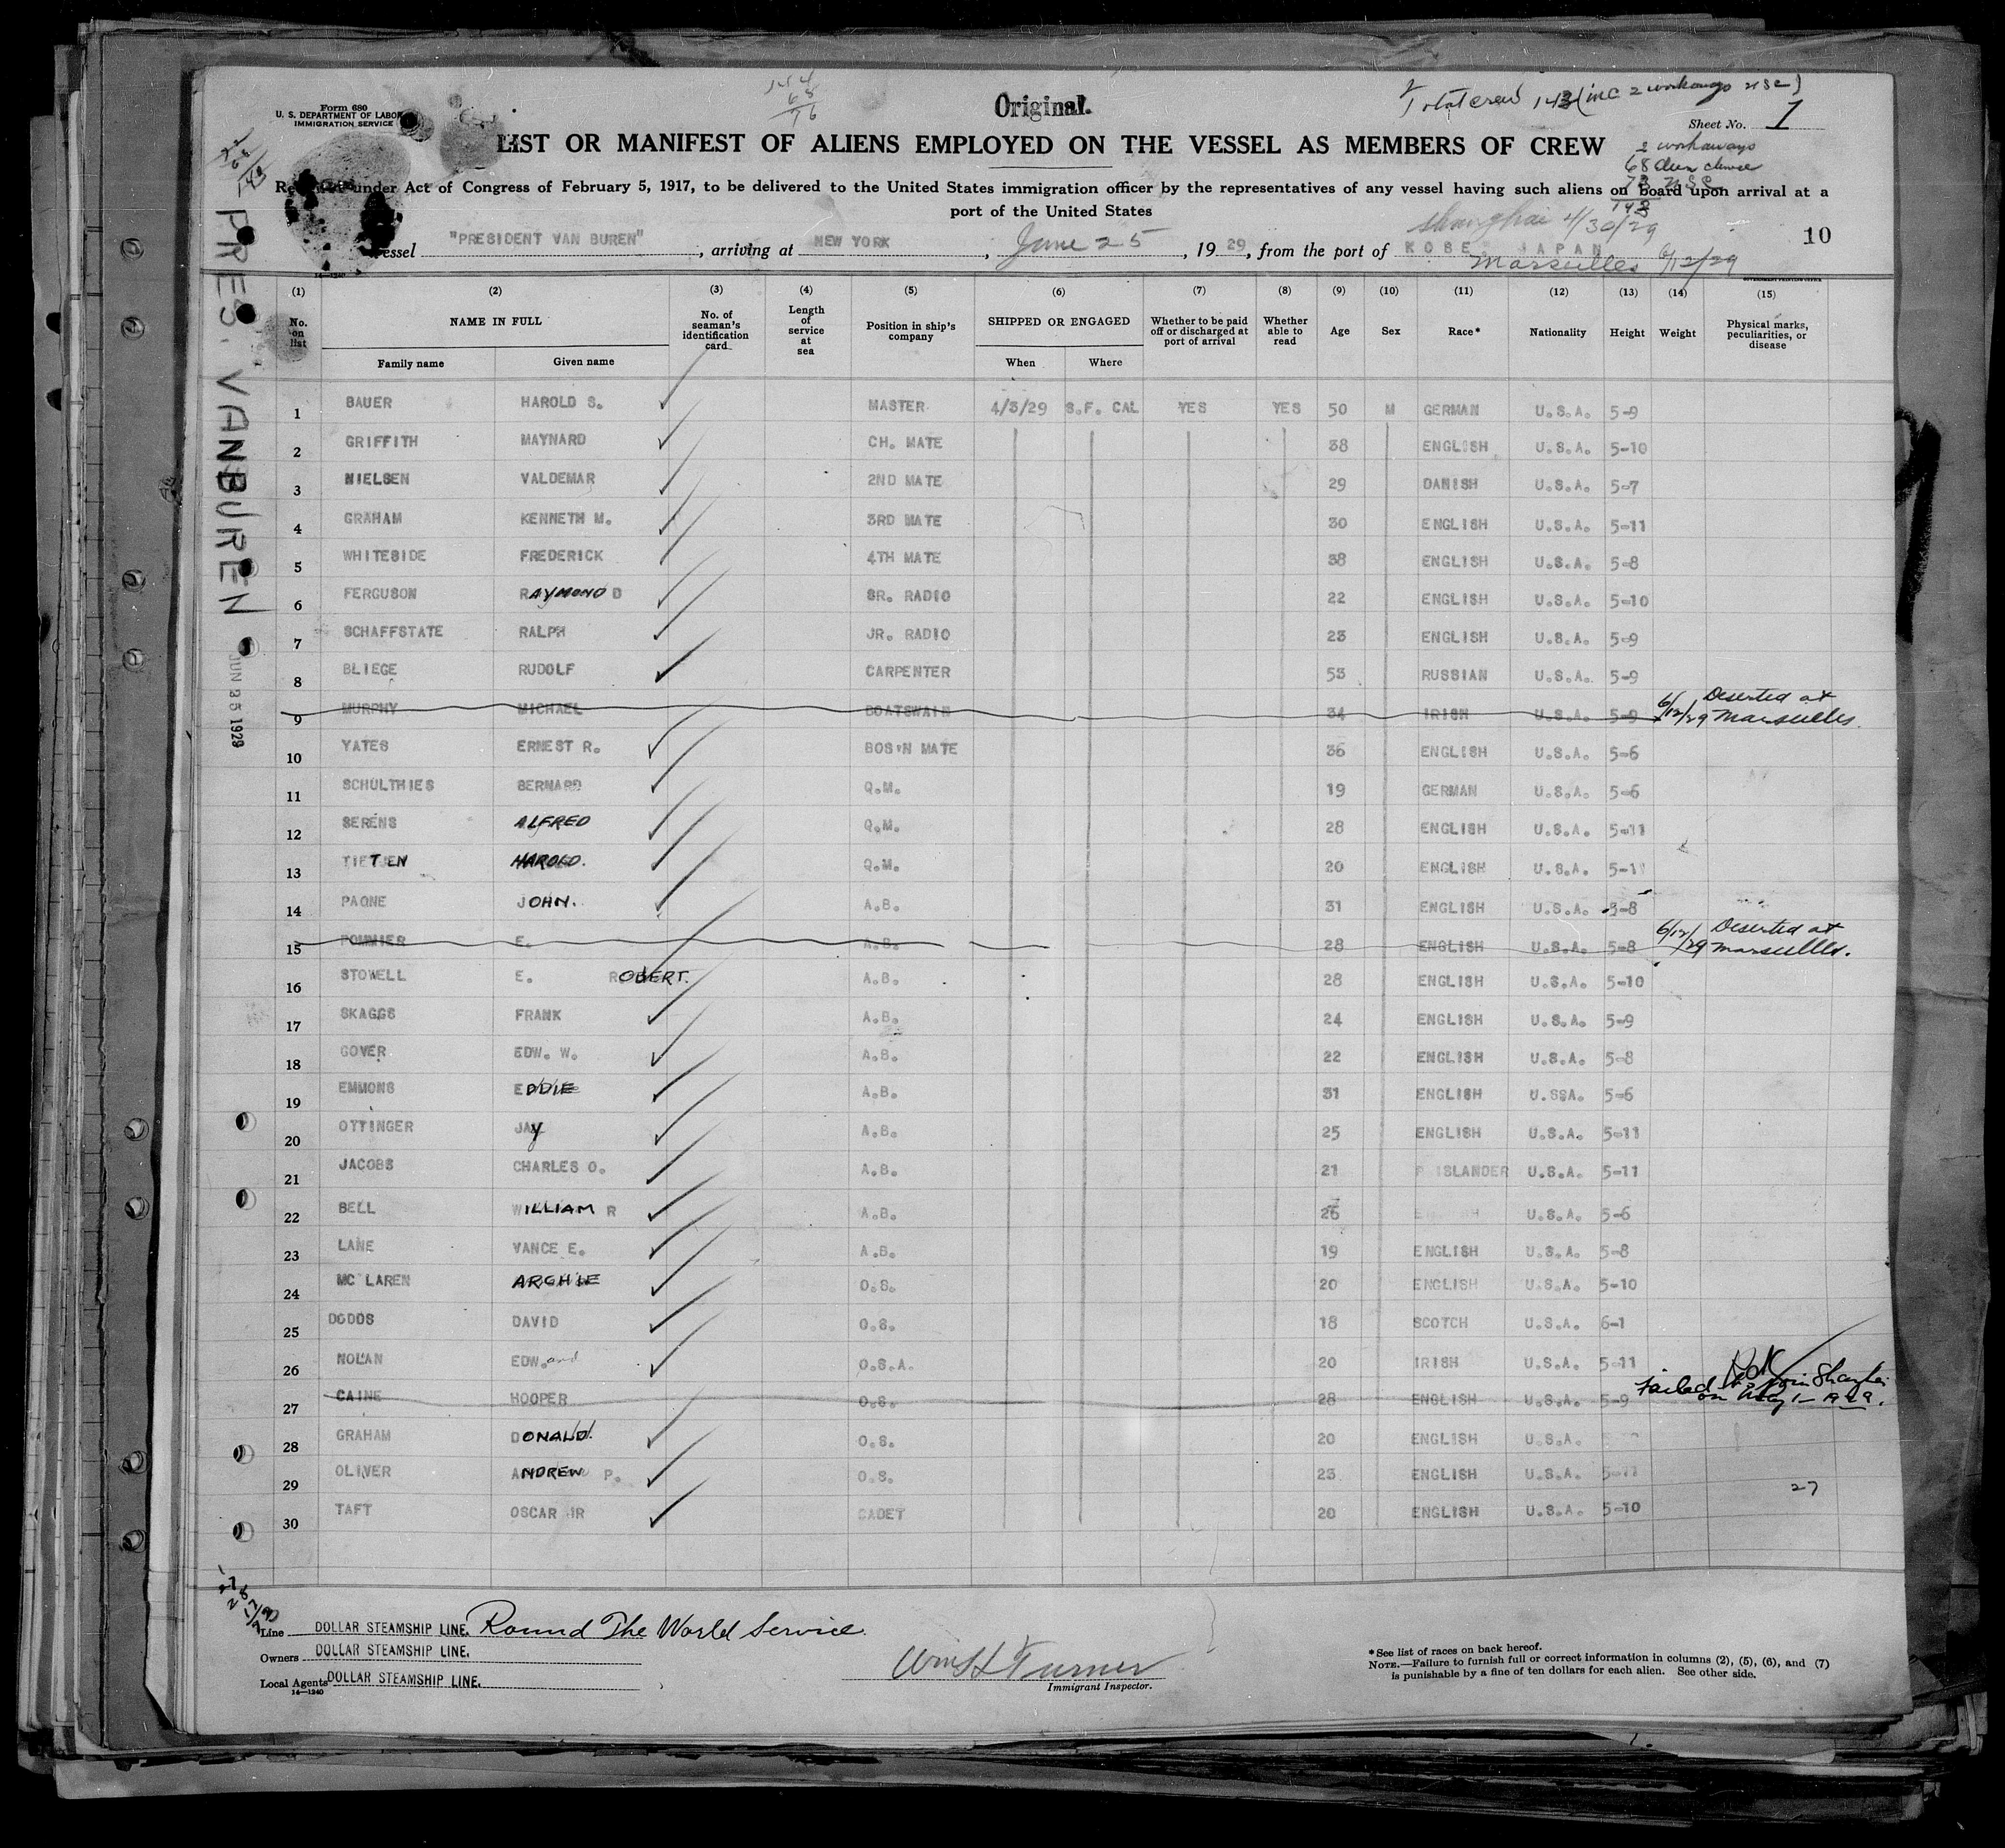 Form 680
U. S. DEPARTMENT OF LABOR
IMMIGRATION SERVICE
Original.
Total crew 143 (inc 2 workaways USC)
Sheet No. 1
LIST OR MANIFEST OF ALIENS EMPLOYED ON THE VESSEL AS MEMBERS OF CREW
2 workaways
68
143
under Act of Congress of February 5, 1917, to be delivered to the United States immigration officer by the representatives of any vessel having such aliens on board upon arrival at a
port of the United States
Shanghai 4/30/29
Vessel "PRESIDENT VAN BUREN", arriving at NEW YORK, June 25, 1929, from the port of KOBE JAPAN
Marseilles 6/12/29
10
14—1240
GOVERNMENT PRINTING OFFICE
PRES. VAN BUREN
JUN 25 1929
(1) (2) (3) (4) (5) (6) (7) (8) (9) (10) (11) (12) (13) (14) (15)
No. on list NAME IN FULL No. of seaman's identification card Length of service at sea Position in ship's company SHIPPED OR ENGAGED Whether to be paid off or discharged at port of arrival Whether able to read Age Sex Race* Nationality Height Weight Physical marks, peculiarities, or disease
Family name Given name When Where
1 BAUER HAROLD S. MASTER 4/3/29 S.F. CAL YES YES 50 M GERMAN U.S.A. 5-9
2 GRIFFITH MAYNARD CH. MATE 38 ENGLISH U.S.A. 5-10
3 NIELSEN VALDEMAR 2ND MATE 29 DANISH U.S.A. 5-7
4 GRAHAM KENNETH M. 3RD MATE 30 ENGLISH U.S.A. 5-11
5 WHITESIDE FREDERICK 4TH MATE 38 ENGLISH U.S.A. 5-8
6 FERGUSON RAYMOND D SR. RADIO 22 ENGLISH U.S.A. 5-10
7 SCHAFFSTATE RALPH JR. RADIO 23 ENGLISH U.S.A. 5-9
8 BLIEGE RUDOLF CARPENTER 53 RUSSIAN U.S.A. 5-9
9 MURPHY MICHAEL BOATSWAIN 34 IRISH U.S.A. 5-9 6/12/29 Deserted at Marseilles.
10 YATES ERNEST R. BOS'N MATE 36 ENGLISH U.S.A. 5-6
11 SCHULTHIES BERNARD Q.M. 19 GERMAN U.S.A. 5-6
12 SERENS ALFRED Q.M. 28 ENGLISH U.S.A. 5-11
13 TIETJEN HAROLD. Q.M. 20 ENGLISH U.S.A. 5-11
14 PAONE JOHN. A.B. 31 ENGLISH U.S.A. 5-8
15 POMMIER E. A.B. 28 ENGLISH U.S.A. 5-8 6/12/29 Deserted at Marseilles.
16 STOWELL E. ROBERT. A.B. 28 ENGLISH U.S.A. 5-10
17 SKAGGS FRANK A.B. 24 ENGLISH U.S.A. 5-9
18 GOVER EDW. W. A.B. 22 ENGLISH U.S.A. 5-8
19 EMMONS EDDIE A.B. 31 ENGLISH U.SSA. 5-6
20 OTTINGER JAY A.B. 25 ENGLISH U.S.A. 5-11
21 JACOBS CHARLES O. A.B. 21 ISLANDER U.S.A. 5-11
22 BELL WILLIAM R A.B. 26 U.S.A. 5-6
23 LANE VANCE E. A.B. 19 ENGLISH U.S.A. 5-8
24 MC LAREN ARCHIE O.S. 20 ENGLISH U.S.A. 5-10
25 DODDS DAVID O.S. 18 SCOTCH U.S.A. 6-1
26 NOLAN EDW.ard O.S.A. 20 IRISH U.S.A. 5-11
27 CAINE HOOPER O.S. 28 ENGLISH U.S.A. 5-9 Failed to join Shanghai on May 1- 1929.
28 GRAHAM DONALD. O.S. 20 ENGLISH U.S.A.
29 OLIVER ANDREW P. O.S. 23 ENGLISH U.S.A. 5-11
27
30 TAFT OSCAR JR CADET 20 ENGLISH U.S.A. 5-10
Line DOLLAR STEAMSHIP LINE. Round The World Service.
Owners DOLLAR STEAMSHIP LINE.
Local Agents DOLLAR STEAMSHIP LINE.
14—1240
Wm H Turner
Immigrant Inspector.
*See list of races on back hereof.
NOTE.—Failure to furnish full or correct information in columns (2), (5), (6), and (7)
is punishable by a fine of ten dollars for each alien. See other side.